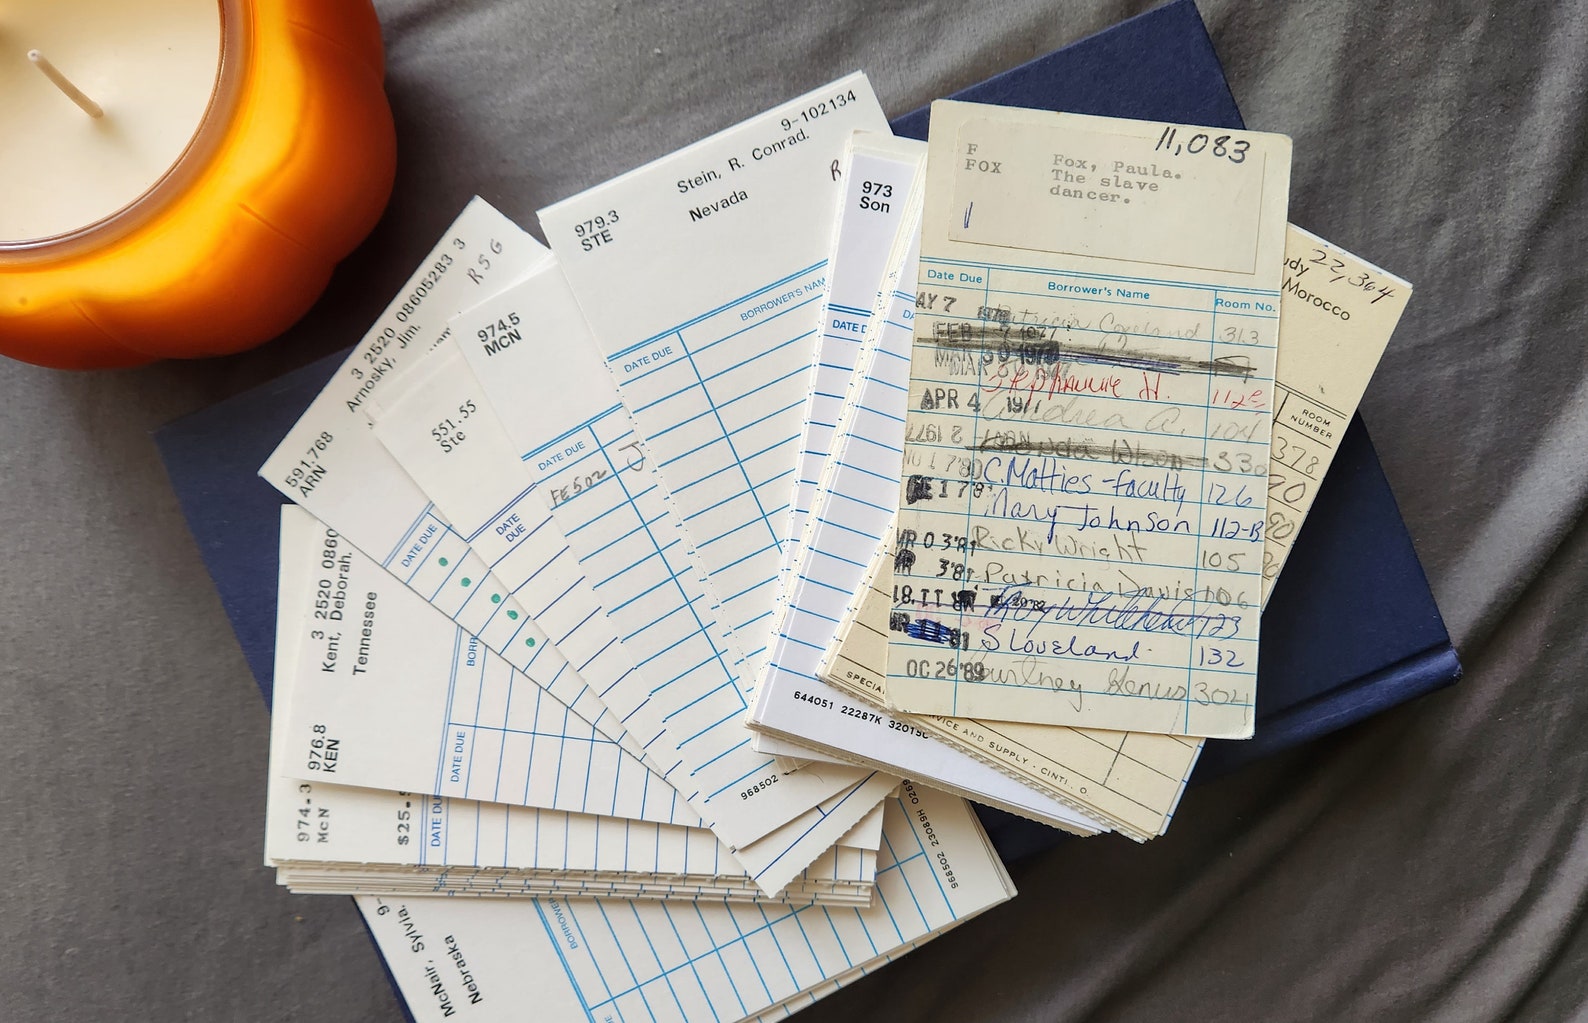 11,083
F
FOX
Fox, Paula.
The slave
dancer.
1
Date Due
Borrower's Name
Room No.
AY 7
Patricia Copeland 313
FEB
MAR 30 1978
Stephannie H. 112
APR 4 1977 Andrea A. 104
2 1977
C. Matties - faculty 126
FE 1 7 8 Mary Johnson 112-B
MR 0 3 '81 Ricky Wright 105
3 '81 Patricia Davis 106
123
S Loveland 132
OC 26 '89 Courtney 304
22,364
Morocco
ROOM
NUMBER
378
90
VICE AND SUPPLY - CINTI. O.
973
Son
DATE D
644051 22287K
9-102134
Stein, R. Conrad.
Nevada
979.3
STE
R
BORROWER'S NAM
DATE DUE
968502
974.5
MCN
DATE DUE
FE 5 02
551.55
Ste
DATE
DUE
3 2520 08605283 3
R56
Arnosky, Jim.
591.768
ARN
DATE DUE
3 2520 0860
Kent, Deborah.
Tennessee
976.8
KEN
BORR
DATE DUE
974.3
McN
$25.
DATE DU
968502 23089H
9-
McNair, Sylvia.
Nebraska
BORROWER